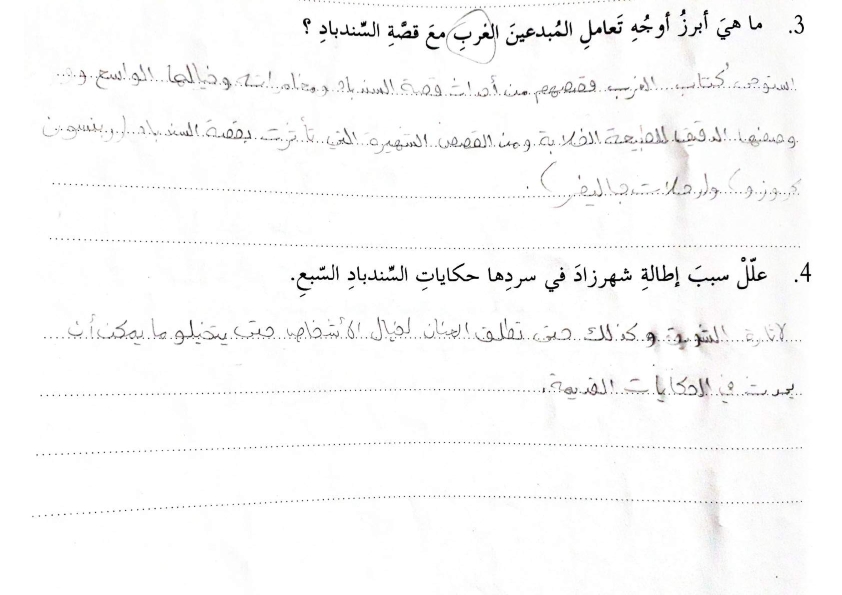 3. ما هيَ أبرزُ أوجُهِ تَعاملِ المُبدعينَ الغربِ معَ قصَّةِ السِّندبادِ ؟
استوحى كُتاب الغرب قصصهم من أحداث قصة السندباد ومغامراته وخيالها الواسع و
وصفها الدقيق للطبيعة الخلابة ومن القصص الشهيرة التي تأثرت بقصة السندباد (روبنسون
كروزو) و(رحلات جاليفر).
4. علّلْ سببَ إطالةِ شهرزادَ في سردِها حكاياتِ السِّندبادِ السّبعِ.
لاثارة التشويق وكذلك حتى تطلق العنان لخيال الأشخاص حتى يتخيلو ما يمكن أن
يحدث في الحكايات القديمة.